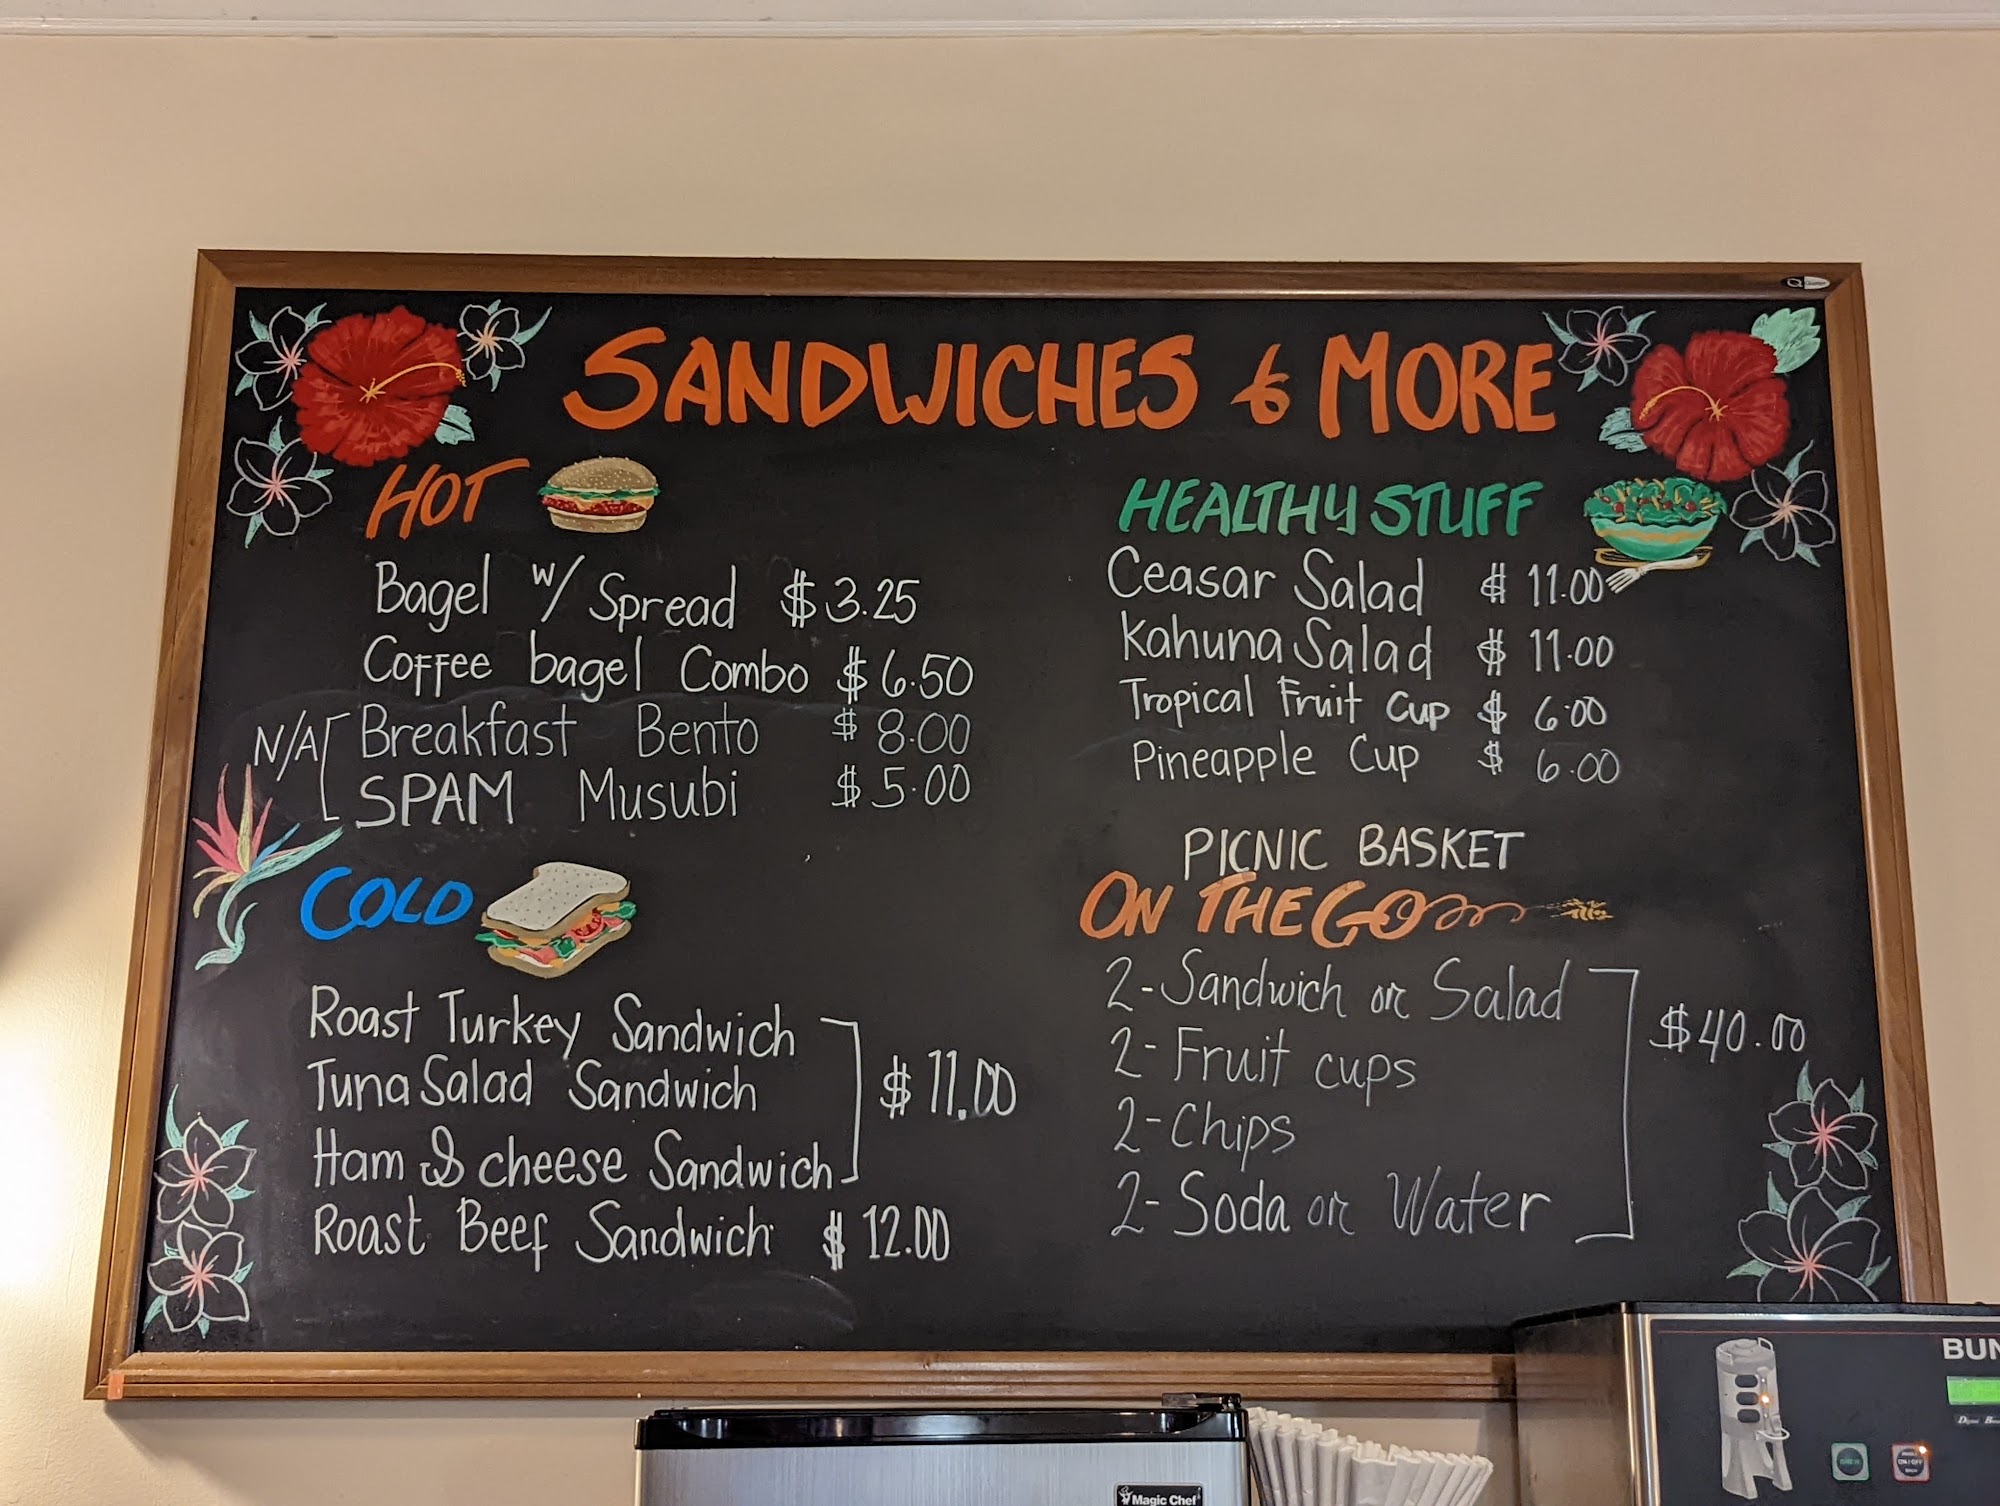 SANDWICHES & MORE
HOT
Bagel w/ Spread $3.25
Coffee bagel Combo $6.50
N/A
Breakfast Bento $8.00
SPAM Musubi $5.00
COLD
Roast Turkey Sandwich
Tuna Salad Sandwich
Ham & cheese Sandwich
$11.00
Roast Beef Sandwich $12.00
HEALTHY STUFF
Ceasar Salad $11.00
Kahuna Salad $11.00
Tropical Fruit Cup $6.00
Pineapple Cup $6.00
PICNIC BASKET
ON THE GO
2-Sandwich or Salad
2-Fruit cups
2-Chips
2-Soda or Water
$40.00
BUN
Magic Chef